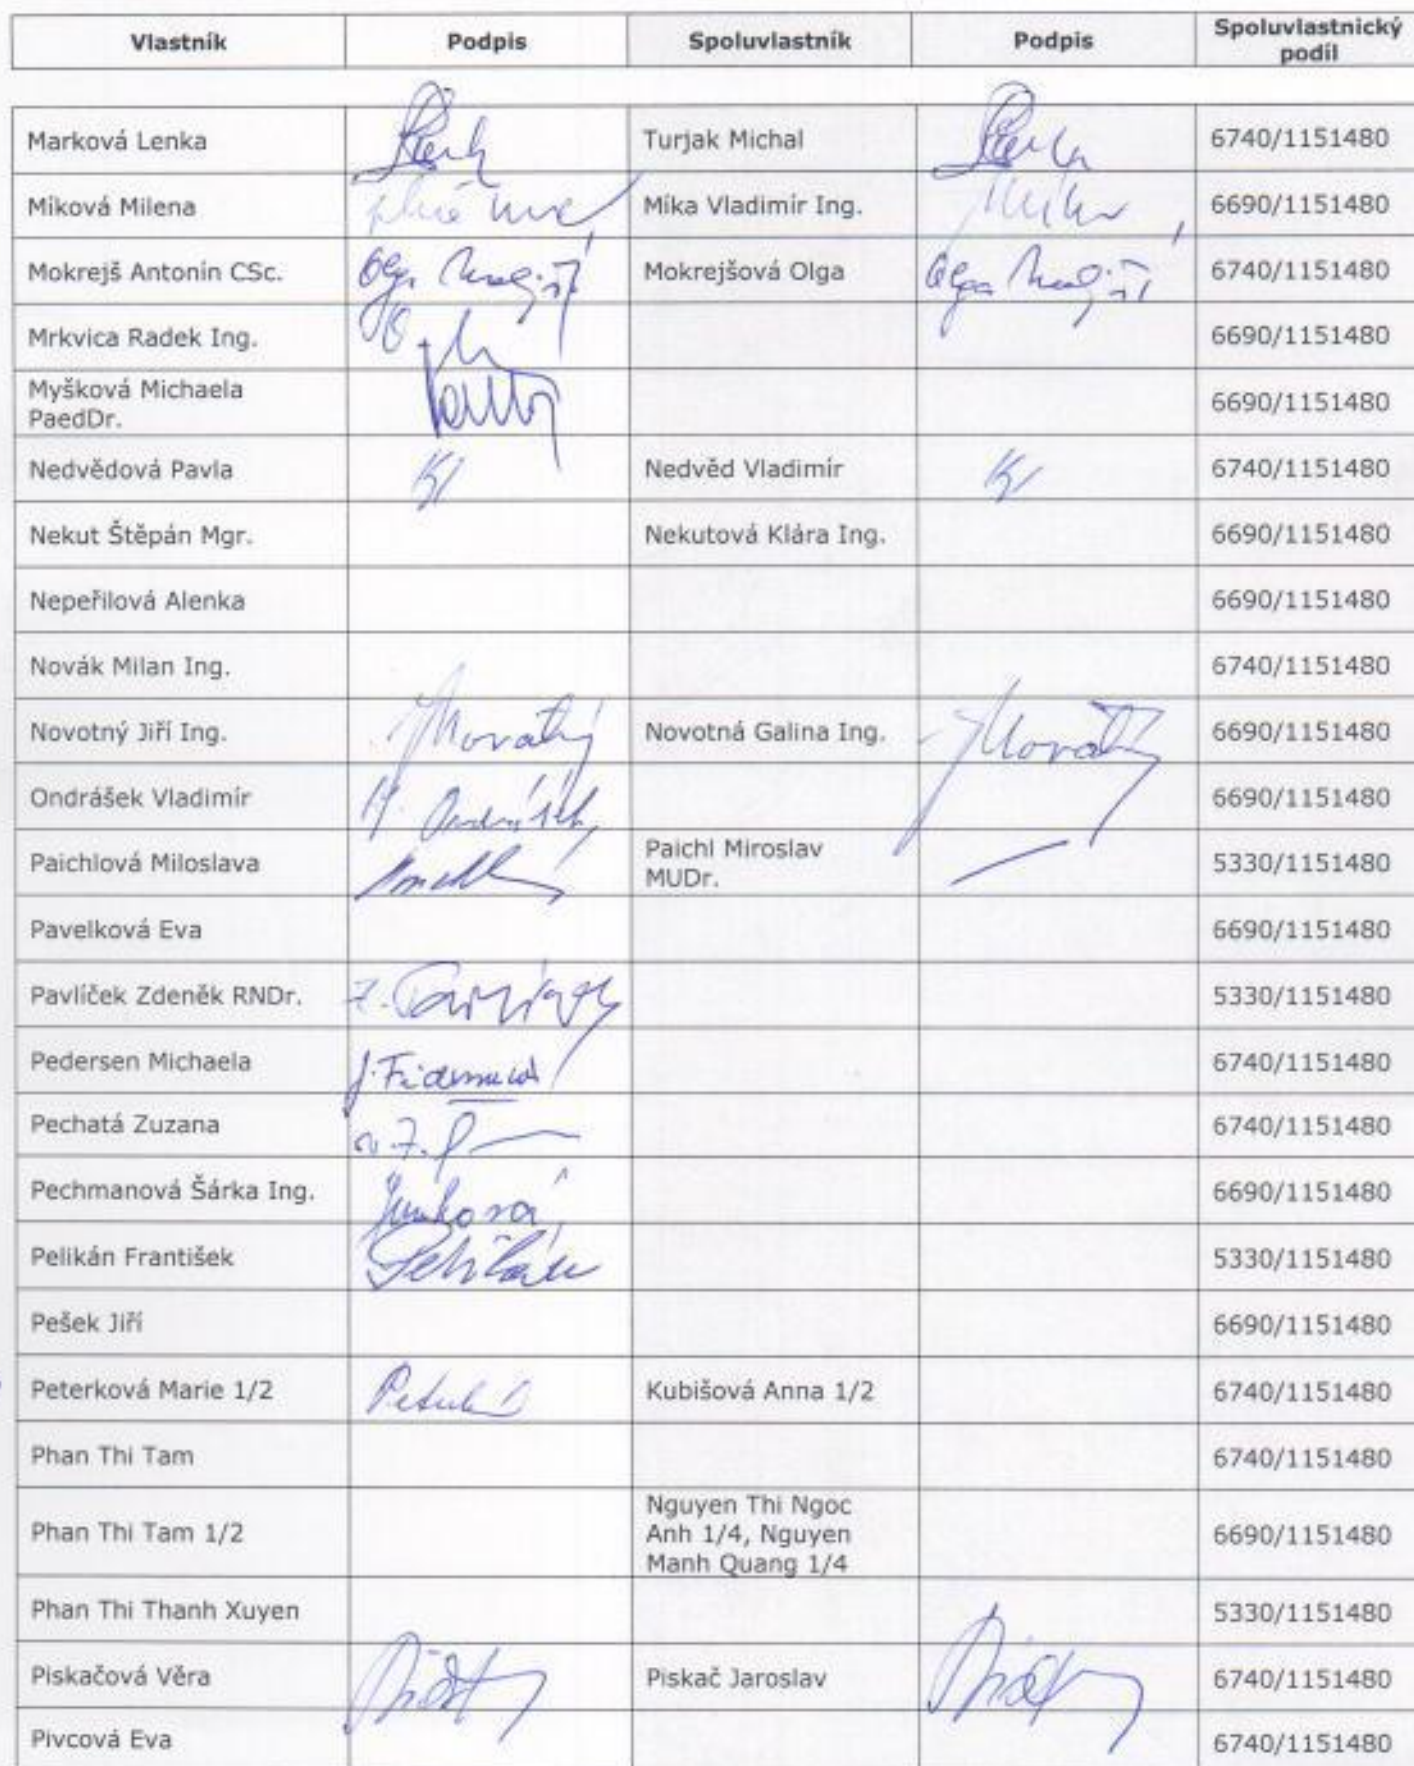 Vlastník Podpis Spoluvlastník Podpis Spoluvlastnický
podíl
Marková Lenka Turjak Michal 6740/1151480
Míková Milena Míka Vladimír Ing. 6690/1151480
Mokrejš Antonín CSc. Mokrejšová Olga Olga 6740/1151480
Mrkvica Radek Ing. 6690/1151480
Myšková Michaela
PaedDr. 6690/1151480
Nedvědová Pavla Nedvěd Vladimír 6740/1151480
Nekut Štěpán Mgr. Nekutová Klára Ing. 6690/1151480
Nepeřilová Alenka 6690/1151480
Novák Milan Ing. 6740/1151480
Novotný Jiří Ing. Novotný Novotná Galina Ing. 6690/1151480
Ondrášek Vladimír Ondrášek 6690/1151480
Paichlová Miloslava Paichl Miroslav
MUDr. 5330/1151480
Pavelková Eva 6690/1151480
Pavlíček Zdeněk RNDr. 5330/1151480
Pedersen Michaela 6740/1151480
Pechatá Zuzana 6740/1151480
Pechmanová Šárka Ing. 6690/1151480
Pelikán František Pelikán 5330/1151480
Pešek Jiří 6690/1151480
Peterková Marie 1/2 Kubišová Anna 1/2 6740/1151480
Phan Thi Tam 6740/1151480
Phan Thi Tam 1/2 Nguyen Thi Ngoc
Anh 1/4, Nguyen
Manh Quang 1/4 6690/1151480
Phan Thi Thanh Xuyen 5330/1151480
Piskačová Věra Piskač Jaroslav 6740/1151480
Pivcová Eva 6740/1151480